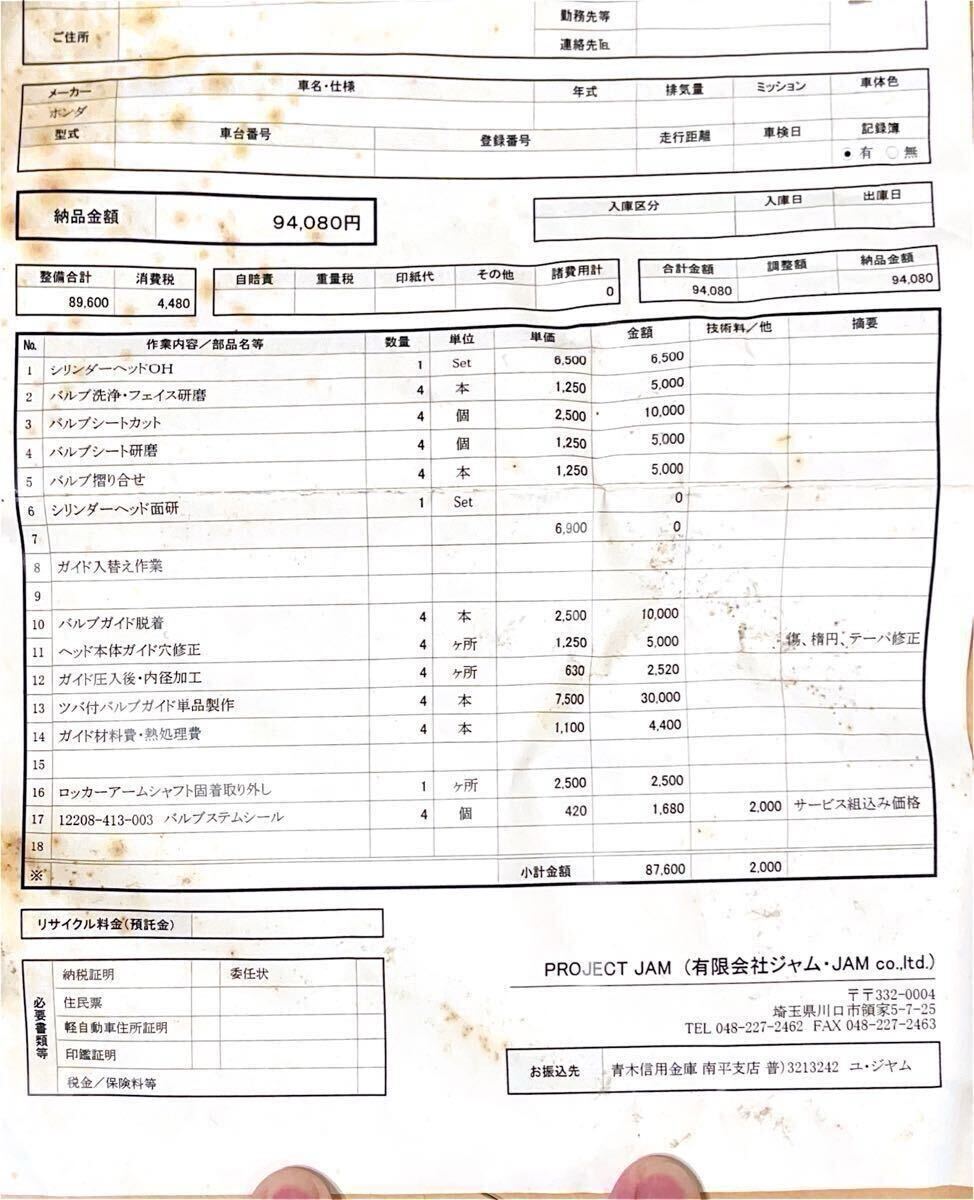 勤務先等
ご住所
連絡先℡
メーカー 車名・仕様 年式 排気量 ミッション 車体色
ホンダ
型式 車台番号 登録番号 走行距離 車検日 記録簿
有 無
納品金額 94,080円
入庫区分 入庫日 出庫日
整備合計 消費税 自賠責 重量税 印紙代 その他 諸費用計 合計金額 調整額 納品金額
89,600 4,480 0 94,080 94,080
No. 作業内容/部品名等 数量 単位 単価 金額 技術料/他 摘要
1 シリンダーヘッドOH 1 Set 6,500 6,500
2 バルブ洗浄・フェイス研磨 4 本 1,250 5,000
3 バルブシートカット 4 個 2,500 10,000
4 バルブシート研磨 4 個 1,250 5,000
5 バルブ摺り合せ 4 本 1,250 5,000
6 シリンダーヘッド面研 1 Set 0
7 6,900 0
8 ガイド入替え作業
9
10 バルブガイド脱着 4 本 2,500 10,000
11 ヘッド本体ガイド穴修正 4 ヶ所 1,250 5,000 傷、楕円、テーパ修正
12 ガイド圧入後・内径加工 4 ヶ所 630 2,520
13 ツバ付バルブガイド単品製作 4 本 7,500 30,000
14 ガイド材料費・熱処理費 4 本 1,100 4,400
15
16 ロッカーアームシャフト固着取り外し 1 ヶ所 2,500 2,500
17 12208-413-003 バルブステムシール 4 個 420 1,680 2,000 サービス組込み価格
18
※ 小計金額 87,600 2,000
リサイクル料金(預託金)
必要書類等
納税証明 委任状
住民票
軽自動車住所証明
印鑑証明
税金/保険料等
PROJECT JAM (有限会社ジャム・JAM co.,ltd.)
〒〒332-0004
埼玉県川口市領家5-7-25
TEL 048-227-2462 FAX 048-227-2463
お振込先 青木信用金庫 南平支店 普)3213242 ユ・ジャム